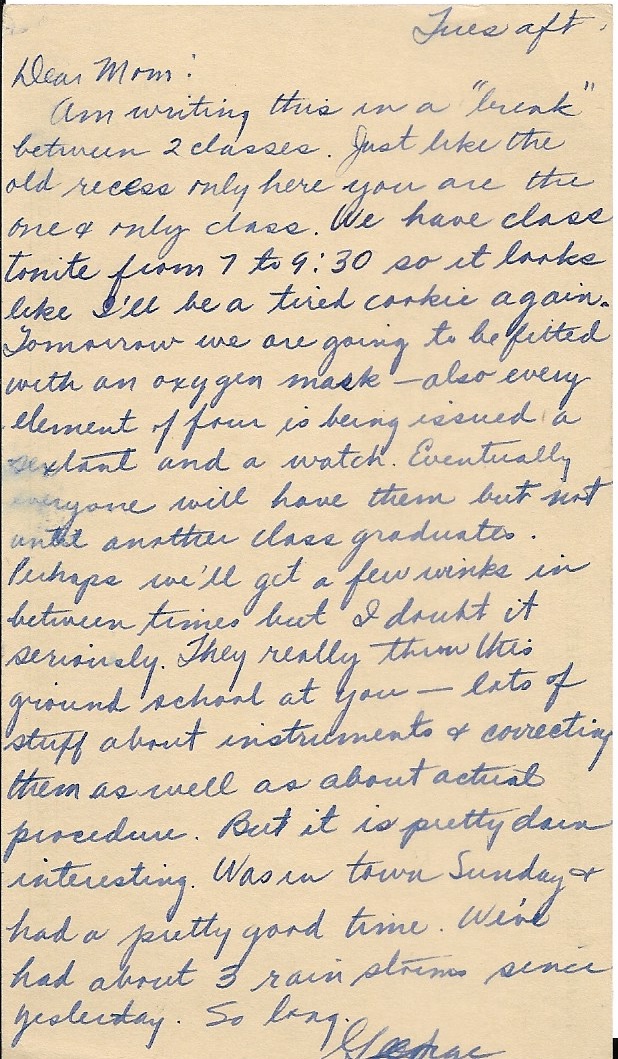 Tues aft.
Dear Mom:
Am writing this in a "break"
between 2 classes. Just like the
old recess only here you are the
one & only class. We have class
tonite from 7 to 9:30 so it looks
like I'll be a tired cookie again.
Tomorrow we are going to be fitted
with an oxygen mask — also every
element of four is being issued a
sextant and a watch. Eventually
everyone will have them but not
until another class graduates.
Perhaps we'll get a few winks in
between times but I doubt it
seriously. They really throw this
ground school at you — lots of
stuff about instruments & correcting
them as well as about actual
procedure. But it is pretty darn
interesting. Was in town Sunday &
had a pretty good time. We've
had about 3 rain storms since
yesterday. So long.
George